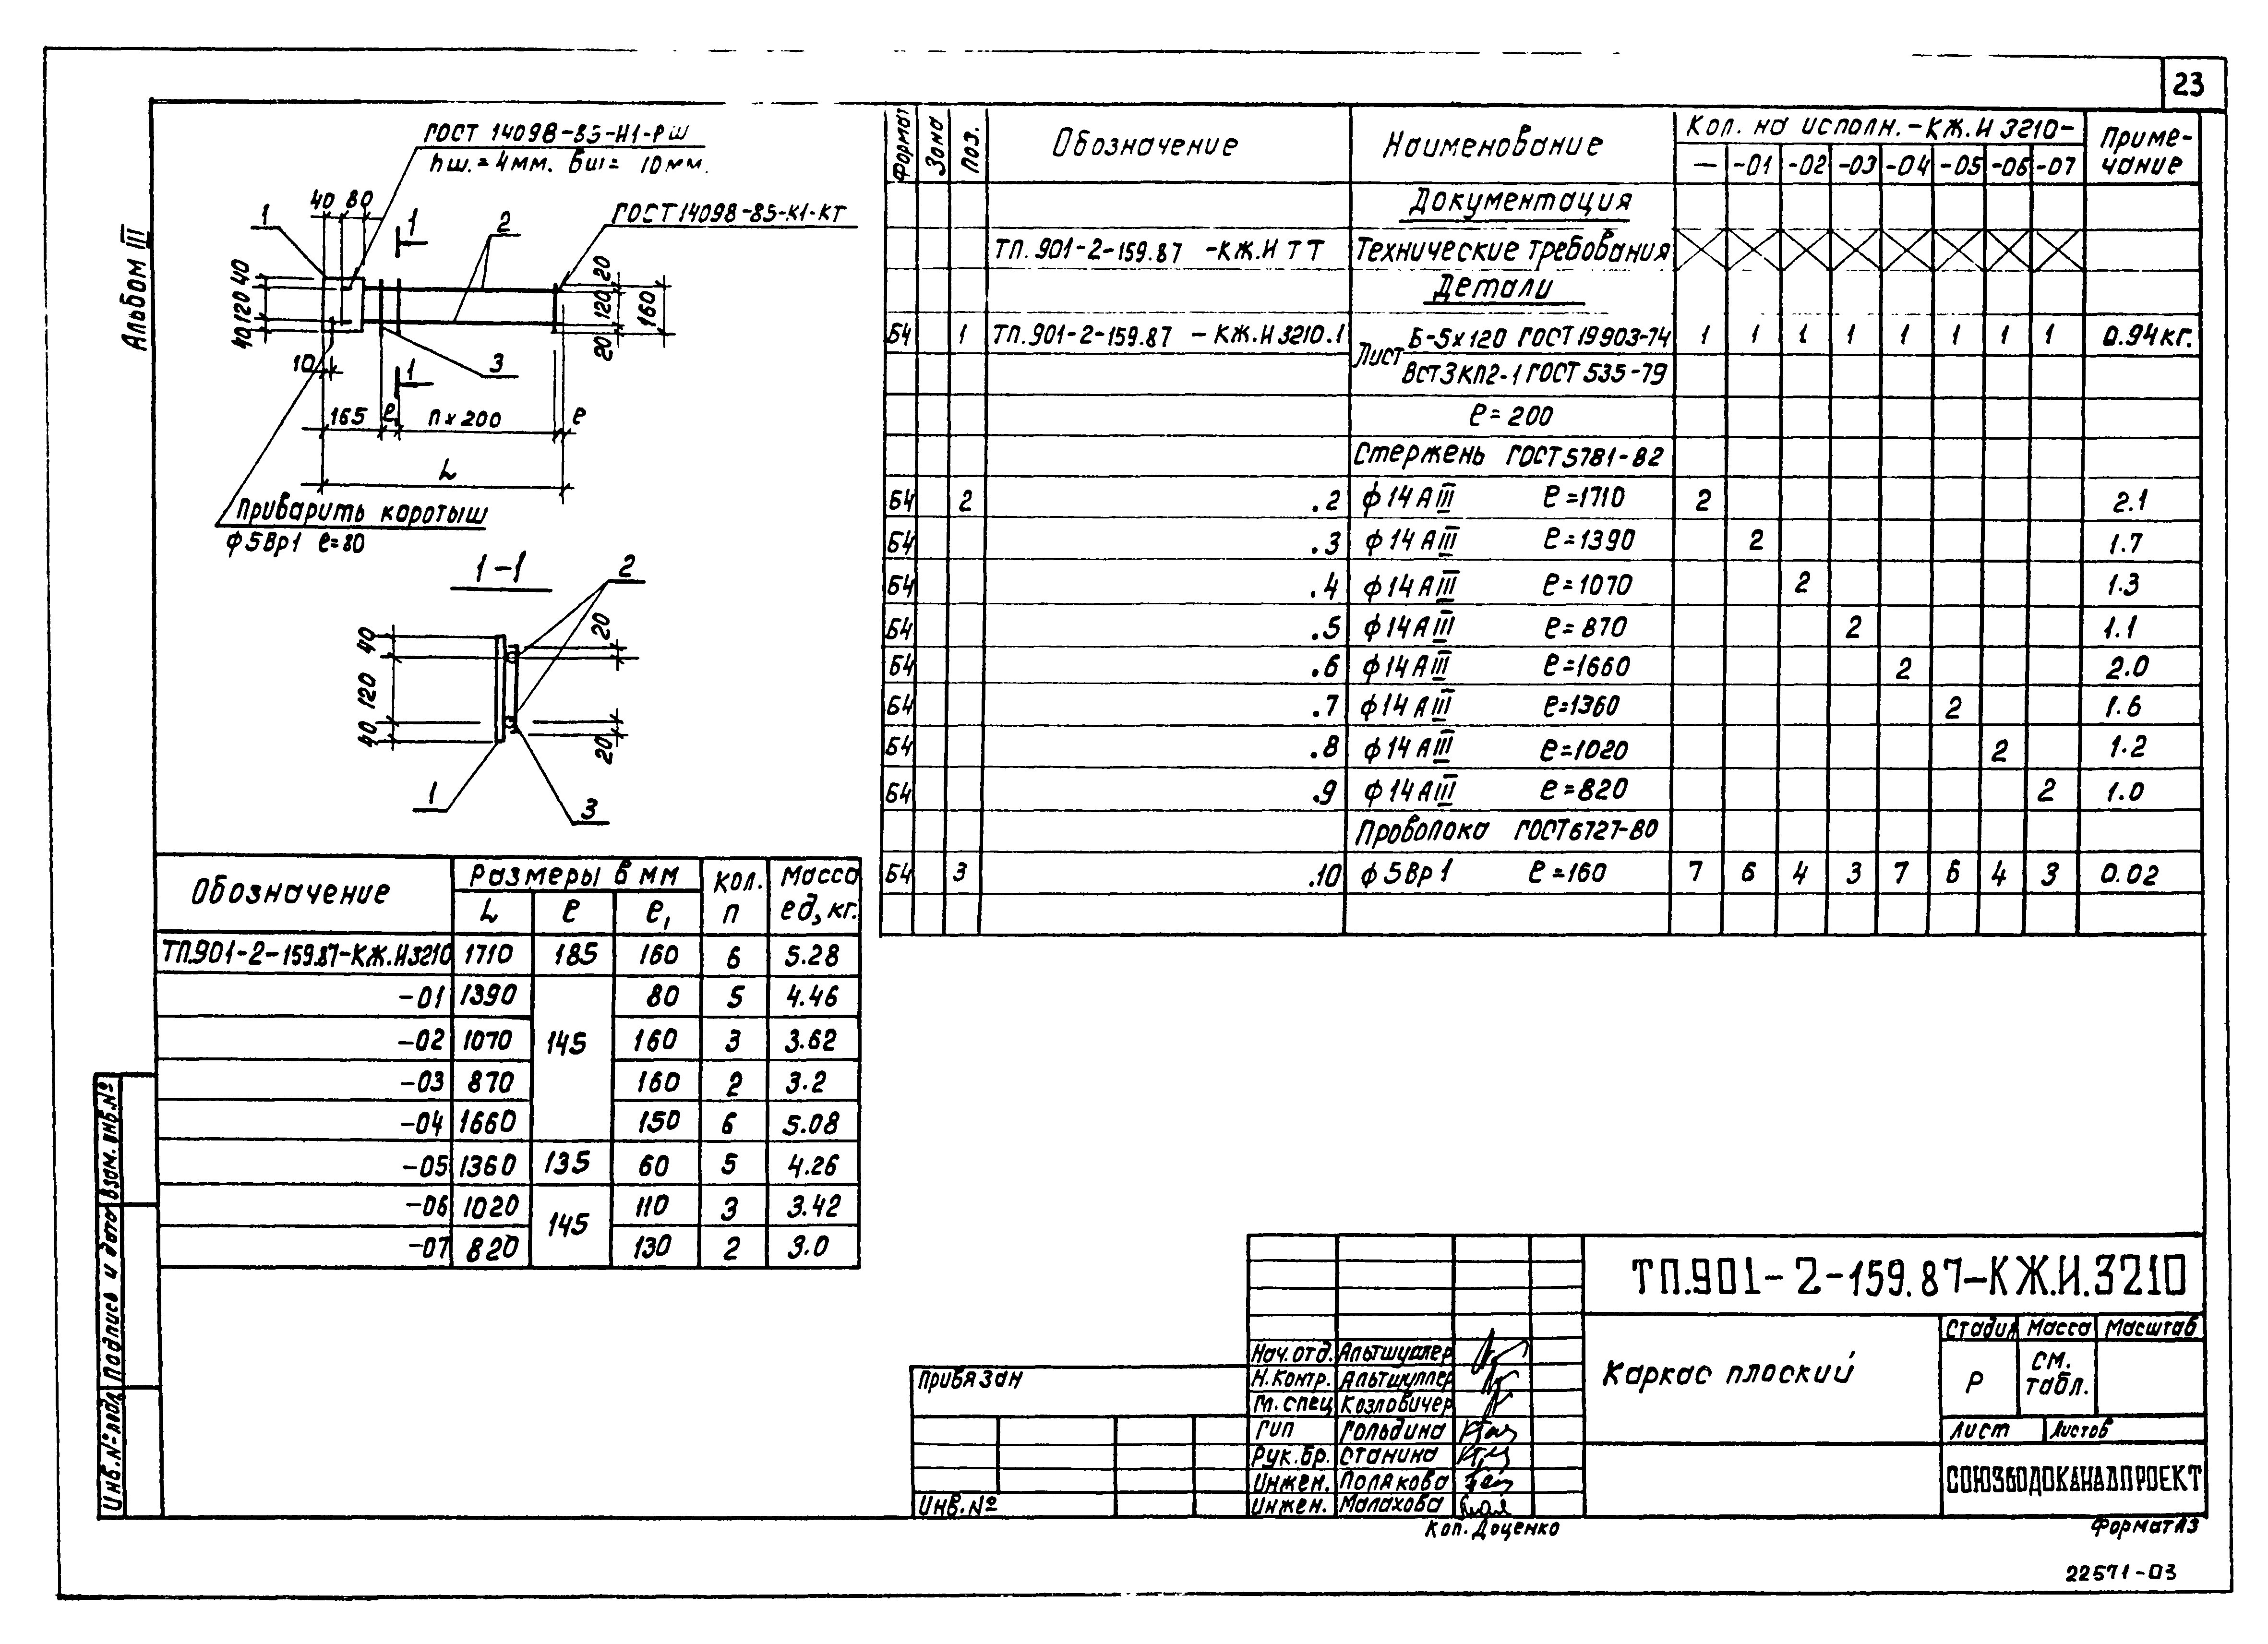 23
Альбом III
ГОСТ 14098-85-Н1-Рш
hш.=4мм. bш= 10мм.
40 80
1
1
2
ГОСТ 14098-85-К1-КТ
40
120
40
20
120
20
160
10
1
3
165
ℓ
n x 200
ℓ
L
Приварить коротыш
ф5Вр1 ℓ=80
1-1
2
40
120
40
20
20
1
3
Формат
Зона
Поз.
Обозначение
Наименование
Кол. на исполн.-КЖ.И 3210-
— -01 -02 -03 -04 -05 -06 -07
Приме-
чание
Документация
ТП. 901-2-159.87 -КЖ.И ТТ Технические требования
Детали
Б4 1 ТП.901-2-159.87 - КЖ.И 3210.1 Лист Б-5х120 ГОСТ 19903-74 1 1 1 1 1 1 1 1 0.94кг.
ВСт3кп2-1 ГОСТ 535-79
ℓ= 200
Стержень ГОСТ 5781-82
Б4 2 .2 ф14АIII ℓ=1710 2 2.1
Б4 .3 ф14АIII ℓ=1390 2 1.7
Б4 .4 ф14АIII ℓ=1070 2 1.3
Б4 .5 ф14АIII ℓ=870 2 1.1
Б4 .6 ф14АIII ℓ=1660 2 2.0
Б4 .7 ф14АIII ℓ=1360 2 1.6
Б4 .8 ф14АIII ℓ=1020 2 1.2
Б4 .9 ф14АIII ℓ=820 2 1.0
Проволока ГОСТ 6727-80
Б4 3 .10 ф5Вр1 ℓ=160 7 6 4 3 7 6 4 3 0.02
Обозначение
Размеры в мм
L ℓ ℓ1
кол.
n
Масса
ед, кг.
ТП.901-2-159.87-КЖ.И3210 1710 185 160 6 5.28
-01 1390 80 5 4.46
-02 1070 145 160 3 3.62
-03 870 160 2 3.2
-04 1660 150 6 5.08
-05 1360 135 60 5 4.26
-06 1020 145 110 3 3.42
-07 820 130 2 3.0
Взам. инв.№
Подпись и дата
Инв.№подл
Привязан
Инв.№
Нач.отд. Альтшуллер
Н.контр. Альтшуллер
Гл.спец Козловичер
ГИП Гольдина
Рук.бр. Станина
Инжен. Полякова
Инжен. Малахова
ТП.901-2-159.87-КЖ.И.3210
Каркас плоский
Стадия Масса Масштаб
Р
см.
табл.
Лист Листов
СОЮЗВОДОКАНАЛПРОЕКТ
Коп. Доценко
Формат А3
22571-03